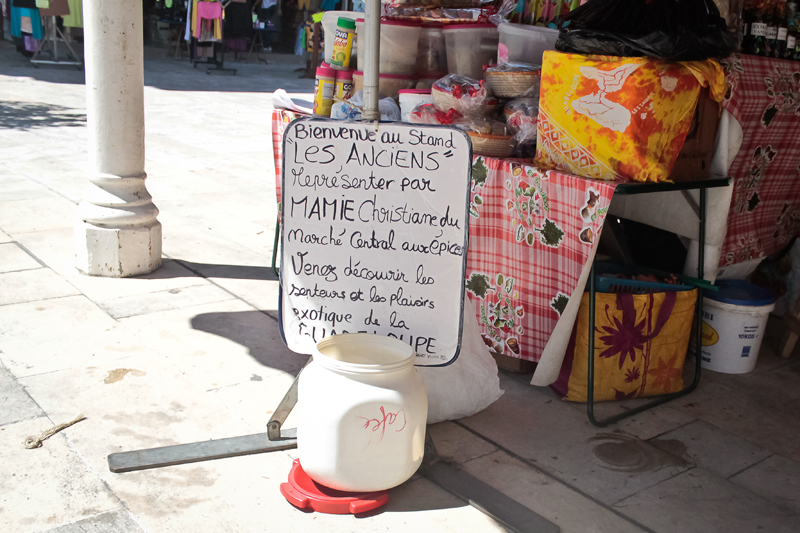 "Bienvenue au Stand
"LES ANCIENS"
Représenter par
MAMIE Christiane du
Marché Central aux épices
Venez découvrir les
senteurs et les plaisirs
exotique de la
GUADELOUPE
Café